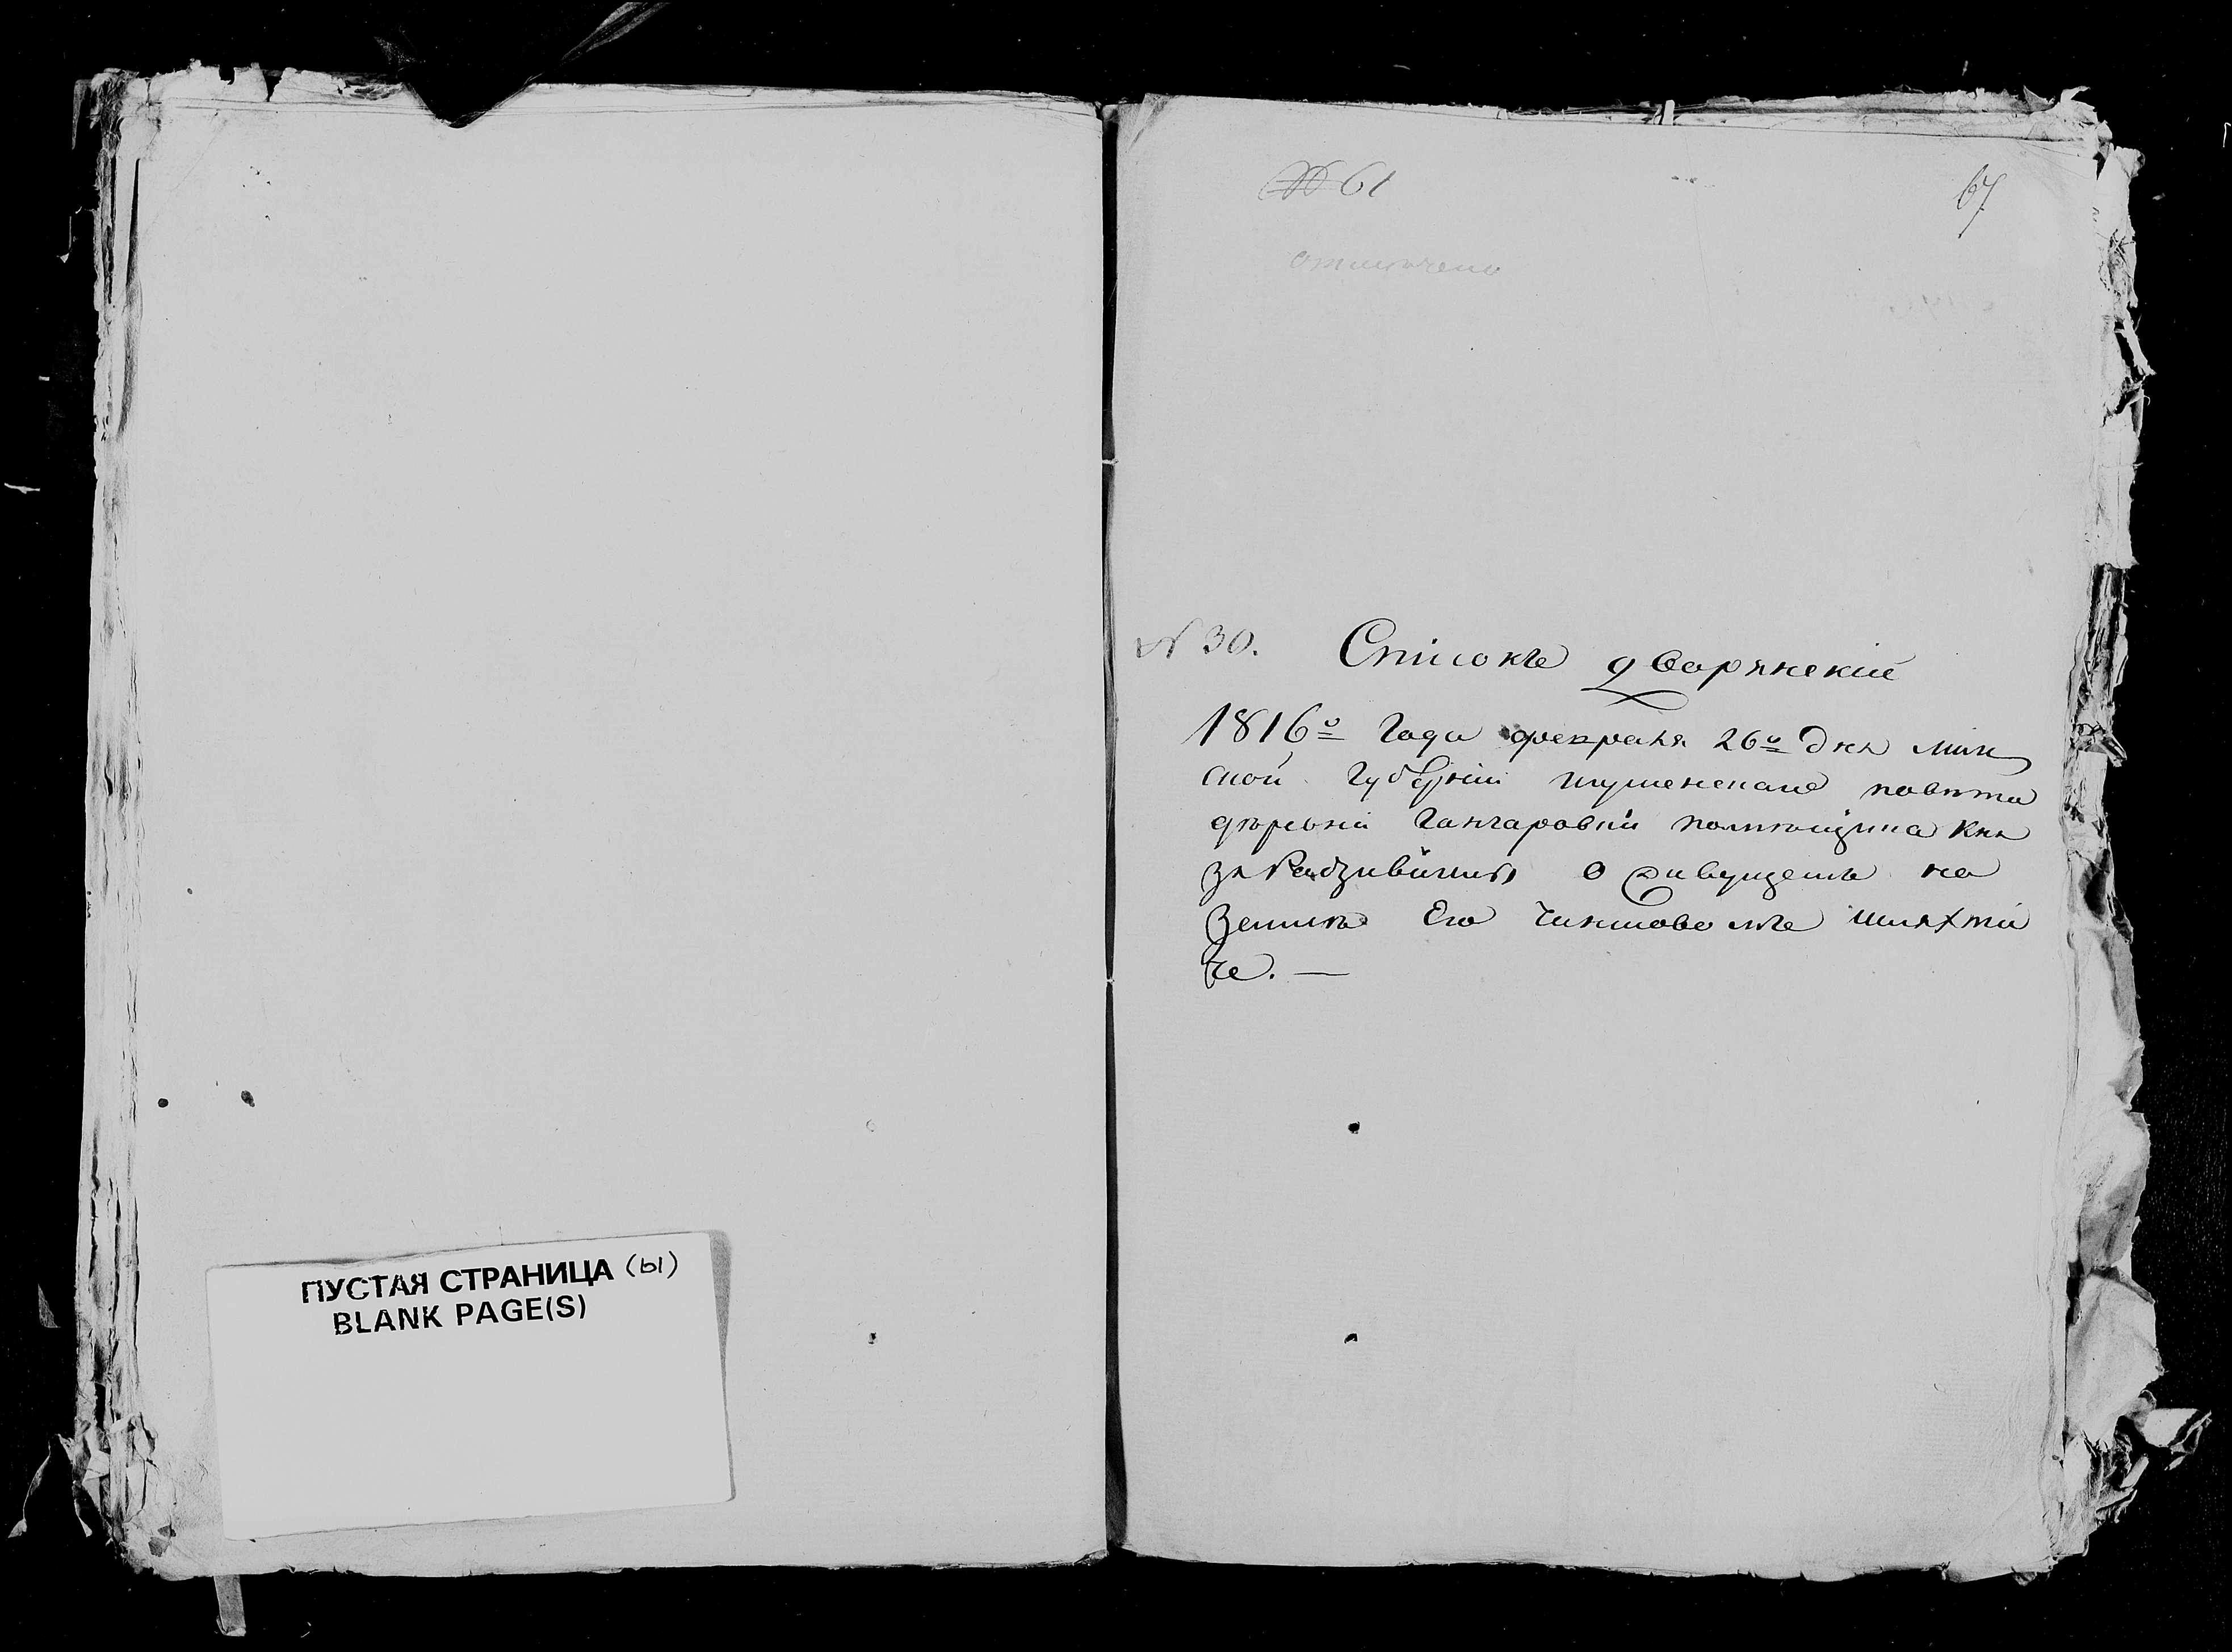 ПУСТАЯ СТРАНИЦА (ы)
BLANK PAGE(S)
№ 61
67
отмечено
№ 30. Списокъ дворянскій
1816го Года февраля 26го дня мин
ской Губерніи игуменскаго повѣта
дѣревни Ганчаровки помѣщика Кня
зя Радзивилла о живущемъ на
Землѣ Его чиншовомъ шляхти
че. —